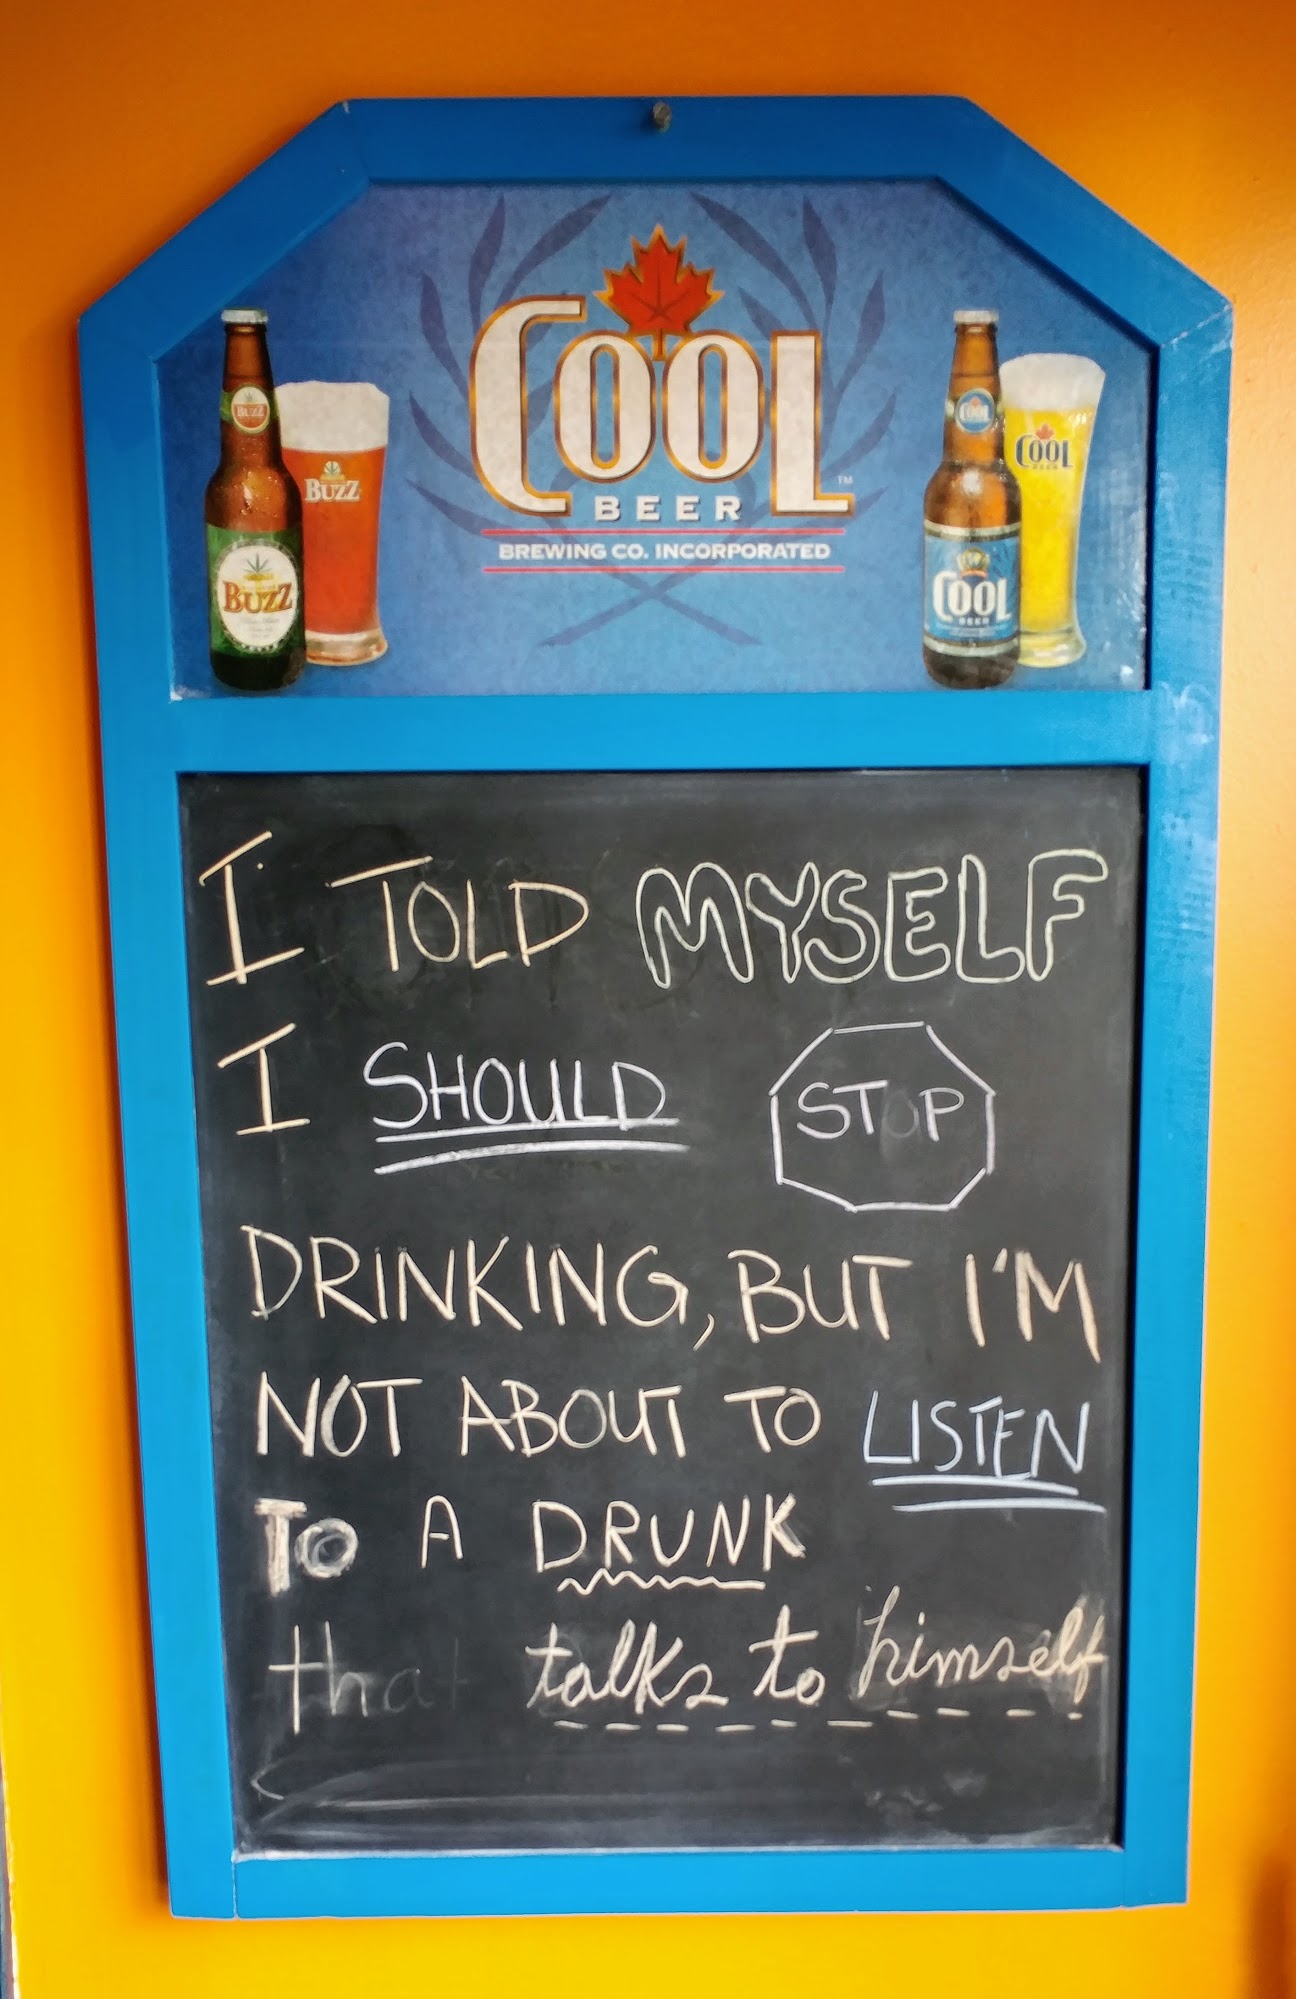 COOL
BEER
TM
BREWING CO. INCORPORATED
BUZZ
BUZZ
BUZZ
COOL
COOL
BEER
COOL
BEER
I TOLD MYSELF
I SHOULD STOP
DRINKING, BUT I'M
NOT ABOUT TO LISTEN
TO A DRUNK
that talks to himself